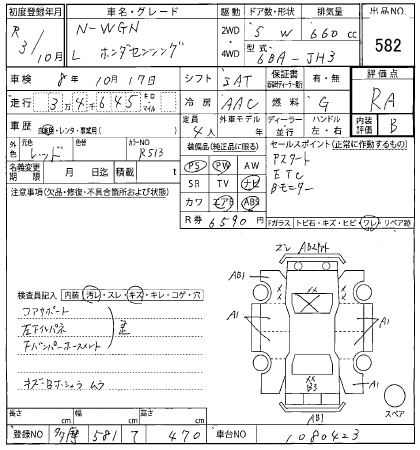 初度登録年月 車名・グレード 駆動 ドア数・形状 排気量 出品NO.
R 3/10月 N-WGN L ホンダセンシング 2WD 4WD 5 W 660cc 582
型式 6BA-JH3
車検 8年 10月 17日 シフト IAT 保証書 有・無 評価点
走行 3万4千645 キロ マイル 冷房 AAC 燃料 G RA
車歴 自家用・レンタ・事業用( ) 定員 4人 ディーラー 並行 ハンドル 左・右 内装評価 B
外装 元色 レッド 色替 カラーNO R513 装備品(純正品に限る) セールスポイント(正常に作動するもの)
名義変更期限 月 日迄 積載 t PS PW AW Pスタート
注意事項(欠品・修復・不具合箇所および状態) SR TV ナビ ETC
カワ エアB ABS Bモニター
R券 6590円 Fガラス トビ石・キズ・ヒビ・ワレ・リペア跡
ズレ
AB1
A1 A1
検査員記入 内装 汚レ・スレ・キズ・キレ・コゲ・穴
コアサポート
左Fインパネ
歪
××
B3
A1
AB1
スペア
長さ cm 幅 cm 高さ cm
登録NO 581 470 車台NO 1080423